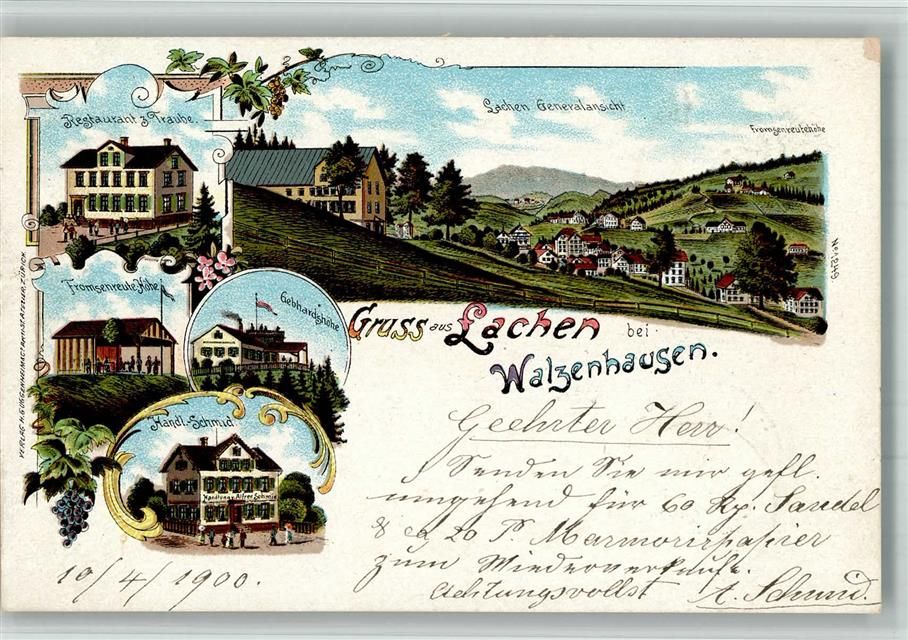 Restaurant z. Traube.
Lachen Generalansicht
Fromsenreutehöhe
Fromsenreute Höhe
Gebhardshöhe
Handl. Schmid.
Handlung v. Alfred Schmid
No 1249
VERLAG H. GUGGENHEIM & CO. ARTIST. ATELIER, ZÜRICH.
Gruss aus Lachen bei
Walzenhausen.
Geehrter Herr!
Senden Sie mir gefl.
umgehend für 60 Rp. Sandel
& ca 20 P. Marmorirpapier
zum Wiederverkaufe.
Achtungsvollst A. Schmid.
10/4/1900.